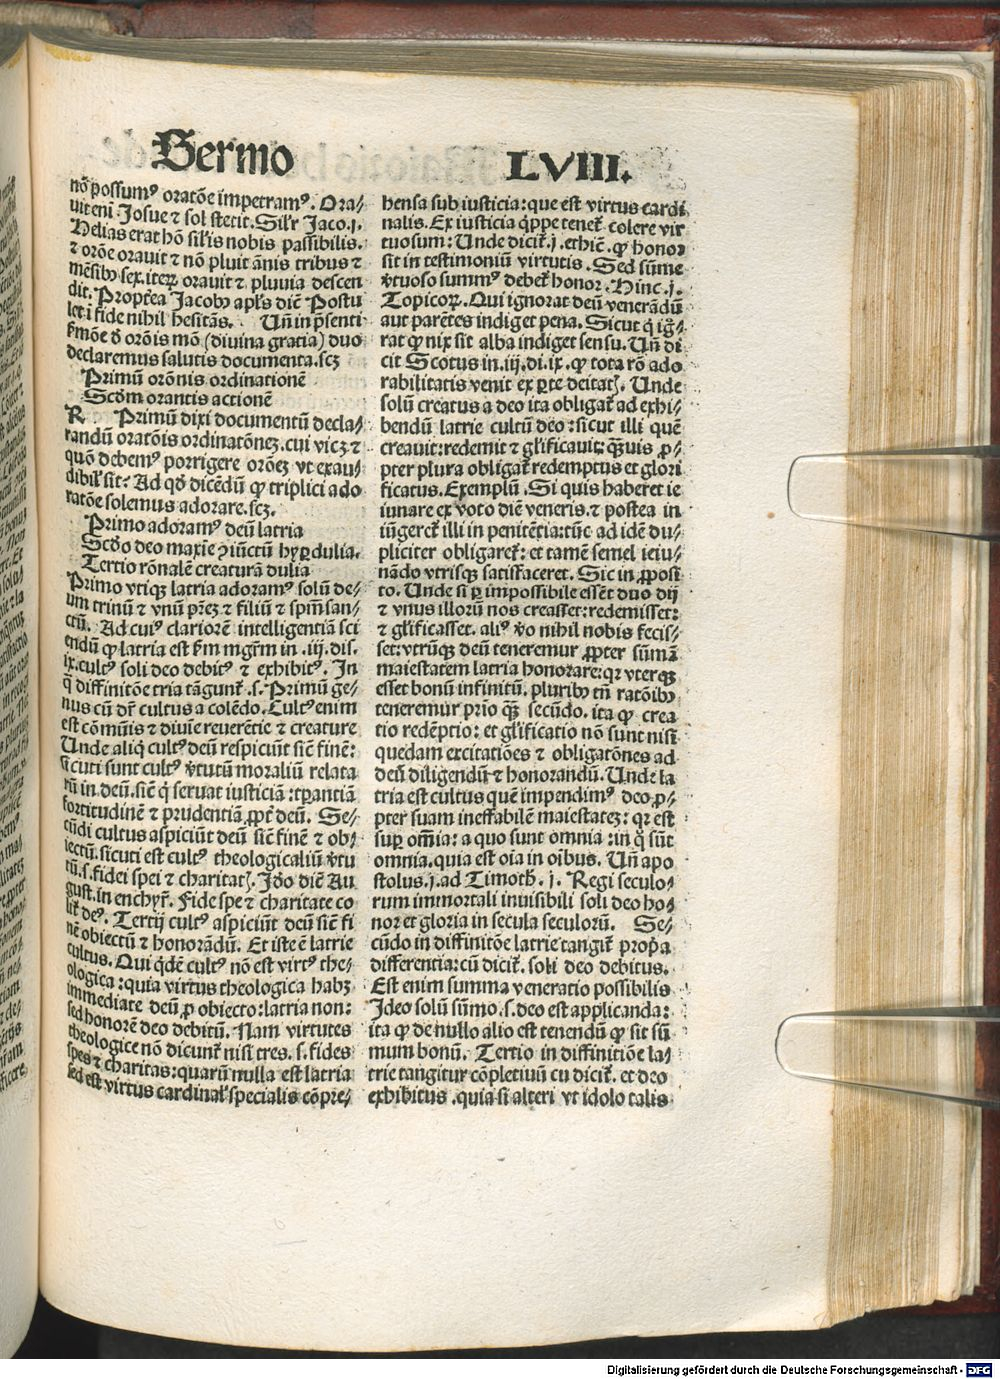 Sermo LVIII.
nō possumꝰ oratōe impetramꝰ. Ora⸗
uit eni Josue ⁊ sol stetit. Silʼr Jaco.j.
Helias erat hō silʼis nobis passibilis.
⁊ orōe orauit ⁊ nō pluit ānis tribus ⁊
mēsibꝰ sex. iterꝫ orauit ⁊ pluuia descen
dit. Proptea Jacobꝰ aplʼs diē Postu
let i fide nihil hesitās. Uñ in p̄senti
ẜmōe ď orōis mō (diuina gratia) duo
declaremus salutis documenta. scꝫ
Primū orōnis ordinationē
Scḋm orantis actionē
R Primū dixi documentū decla⸗
randū oratōis ordinatōneꝫ. cui vicꝫ ⁊
quō debemꝰ porrigere orōeꝫ vt exau⸗
dibilʼ sit? Ad qḋ dicēdū ꝙ triplici ado
ratōe solemus adorare. scꝫ.
Primo adoramꝰ deū latria
Scḋo deo maxīe ꝯiūctū hyꝑdulia.
Tertio rōnalē creaturā dulia
Primo vtiqꝫ latria adoramꝰ solū de⸗
um trinū ⁊ vnū pr̄eꝫ ⁊ filiū ⁊ spm̄ san⸗
ctū. Ad cuiꝰ clariorē intelligentiā sci
endū ꝙ latria est ẜm mgr̄m in .iij. dis.
ix. cultꝰ soli deo debitꝰ ⁊ exhibitꝰ. In
q̄ diffinitōe tria tāgunt̄ .s. Primū ge⸗
nus cū dr̄ cultus a colēdo. Cultꝰ enim
est cōmūis ⁊ diuīe reuerētie ⁊ creature
Unde aliqͥ cultꝰ deū respiciūt sic̄ finē:
sicuti sunt cultꝰ v̄tutū moraliū relata
rū in deū. sic̄ qͥ seruat iusticiā : tꝑantiā
fortitudinē ⁊ prudentiā ꝓpt̄ deū. Se⸗
cūdi cultus aspiciūt deū sic̄ finē ⁊ ob⸗
iectū. sicuti est cultꝰ theologicaliū v̄tu
tū. s. fidei spei ⁊ charitatꝭ. Jḋo diē Au
gust. in enchyr̄. Fide spe ⁊ charitate co
lit̄ deꝰ. Tertij cultꝰ aspiciūt deū sic̄ fi
nē obiectū ⁊ honorādū. Et iste ē latrie
cultus. Qui qͥdē cultꝰ nō est virtꝰ the⸗
ologica : quia virtus theologica habꝫ
immediate deū ꝓ obiecto : latria non:
sed honorē deo debitū. Nam virtutes
theologice nō dicunt̄ nisi tres. s. fides
spes ⁊ charitas: quarū nulla est latria
sed est virtus cardinalʼ specialis cōpre⸗
hensa sub iusticia: que est virtus cardi
nalis. Ex iusticia qͥppe tenet̄ colere vir
tuosum: Unde dicit̄. j. ethic̄. ꝙ honor
sit in testimoniū virtutis. Sed sūme
v̄tuoso summꝰ debet̄ honor. Hinc. j.
Topicoꝝ. Qui ignorat deū venerādū
aut parētes indiget pena. Sicut qͥ ig̅⸗
rat ꝙ nix sit alba indiget sensu. Uñ di
cit Scotus in. iij. di. ix. ꝙ tota rō ado
rabilitatis venit ex ꝑte deitatꝭ. Unde
solū creatus a deo ita obligat̄ ad exhi⸗
bendū latrie cultū deo : sicut illi quē
creauit: redemit ⁊ glʼificauit: qͣꝫuis ꝓ⸗
pter plura obligat̄ redemptus et glori
ficatus. Exemplū. Si quis haberet ie
iunare ex voto die veneris. ⁊ postea in
iūgeret̄ illi in penitētia: tūc ad idē du⸗
pliciter obligaret̄: et tamē semel ieiu⸗
nādo vtrisqꝫ satisfaceret. Sic in ꝓposi
to. Unde si ꝑ impossibile essēt duo dij
⁊ vnus illorū nos creasset: redemisset:
⁊ glʼificasset. aliꝰ v̄o nihil nobis fecis⸗
set: vtrūqꝫ deū teneremur ꝓpter sūmā
maiestatem latria honorare: qꝛ vterqꝫ
esset bonū infinitū. pluribꝰ tñ ratōibꝰ
teneremur prio qͣꝫ secūdo. ita ꝙ crea
tio redēptio: et glʼificatio nō sunt nisi
quedam excitatiōes ⁊ obligatōnes ad
deū diligendū ⁊ honorandū. Unde la
tria est cultus quē impendimꝰ deo ꝓ⸗
pter suam ineffabilē maiestateꝫ: qꝛ est
suꝑ om̄ia: a quo sunt omnia : in qͦ sūt
omnia. quia est oīa in oībus. Uñ apo
stolus. j. ad Timoth̄. j. Regi seculo⸗
rum immortali inuisibili soli deo ho⸗
nor et gloria in secula seculorū. Se⸗
cūdo in diffinitōe latrie tangit̄ propͥa
differentia: cū dicit̄. soli deo debitus.
Est enim summa veneratio possibilis
Jdeo solū sūmo. s. deo est applicanda:
ita ꝙ de nullo alio est tenendū ꝙ sit sū
mum bonū. Tertio in diffinitiōe la⸗
trie tangitur cōpletiuū cū dicit̄. et deo
exhibitus . quia si alteri vt idolo talis
Digitalisierung gefördert durch die Deutsche Forschungsgemeinschaft - DFG